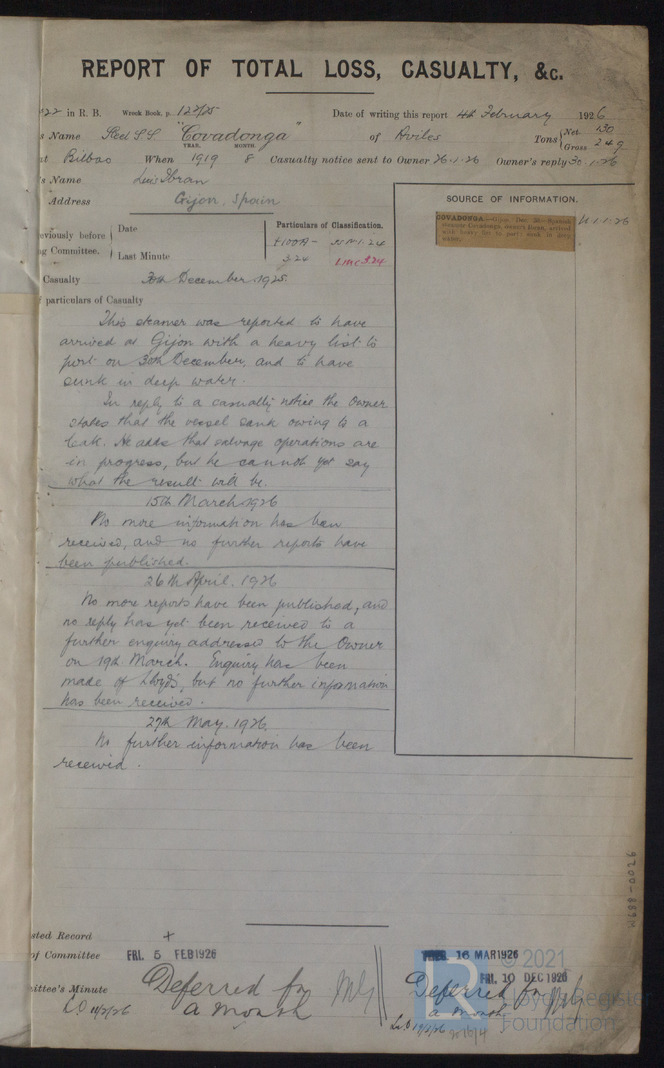 REPORT OF TOTAL LOSS, CASUALTY, &c.
22 in R. B. Wreck Book, p. 122/25 Date of writing this report 4th February 1926
s Name Steel S.S "Covadonga" of Aviles Tons Net 130 Gross 249
YEAR. MONTH.
Bilbao When 1919 8 Casualty notice sent to Owner 26.1.26 Owner's reply 30.1.26
's Name Luis Ibran
Address Gijon, Spain
SOURCE OF INFORMATION.
COVADONGA.—Gijon, Dec. 30—Spanish
steamer Covadonga, arrived
with heavy list to port; sunk in deep
water.
1.1.26
eviously before
ng Committee.
Date
Last Minute
Particulars of Classification.
+100A-
3.24 LMC 3.24
Casualty 30th December, 1925.
f particulars of Casualty
This steamer was reported to have
arrived at Gijon with a heavy list to
port on 30th December, and to have
sunk in deep water.
In reply to a casualty notice the Owner
states that the vessel sank owing to a
leak. He adds that salvage operations are
in progress, but he cannot yet say
what the result will be.
15th March 1926
No more information has been
received, and no further reports have
been published.
26th April, 1926
No more reports have been published, and
no reply has yet been received to a
further enquiry addressed to the Owner
on 19th March. Enquiry has been
made of Lloyd's, but no further information
has been received.
27th May, 1926
No further information has been
received.
W688-0029
sted Record +
of Committee FRI. 5 FEB 1926
16 MAR 1926
FRI. 10 DEC 1926
ittee's Minute Deferred for
a month
11/2/26
Deferred for
a month
© 2021
Lloyd's Register
Foundation